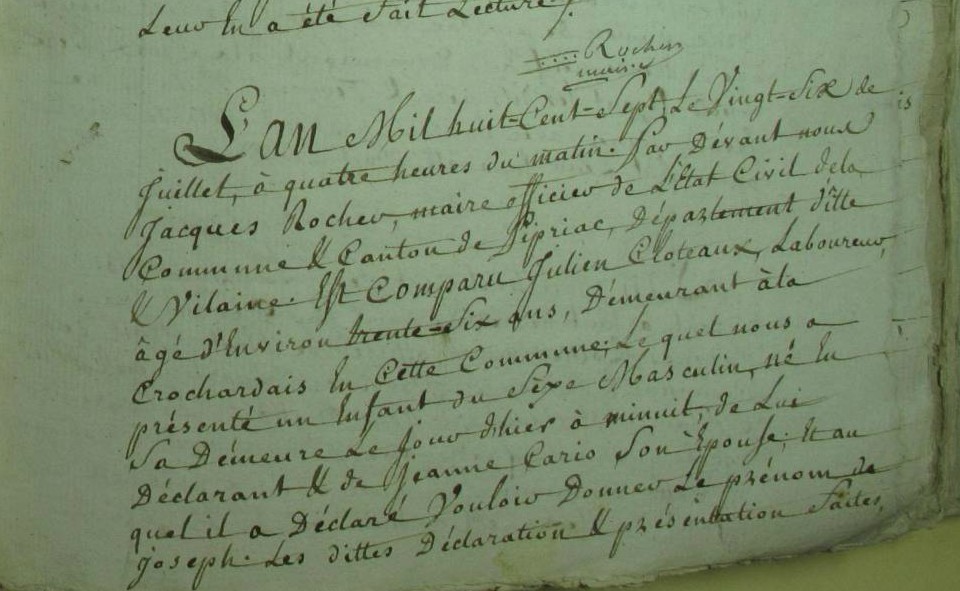 Leur En a été fait Lecture /.
Rocher
maire
L'an Mil huit-Cent-Sept, Le Vingt-Six de
Juillet, à quatre heures du matin. Par Dévant nous
Jacques Rocher, maire officier de L'Etat Civil dela
Commune & Canton de Pipriac, Département d'ille
& Vilaine. Est Comparu Julien Cloteaux, Laboureur,
âgé d'Environ trente-Six ans, Démeurant àla
Crochardais En Cette Commune; Le quel nous a
présenté un Enfant du Séxe Masculin, né En
Sa Démeure Le jour d'hier à minuit, de Lui
Déclarant & de Jeanne Cario Son Épouse; Et au
quel il a Déclaré Vouloir Donner Le prénom de
joseph. Les dittes Déclaration & présentation faites,